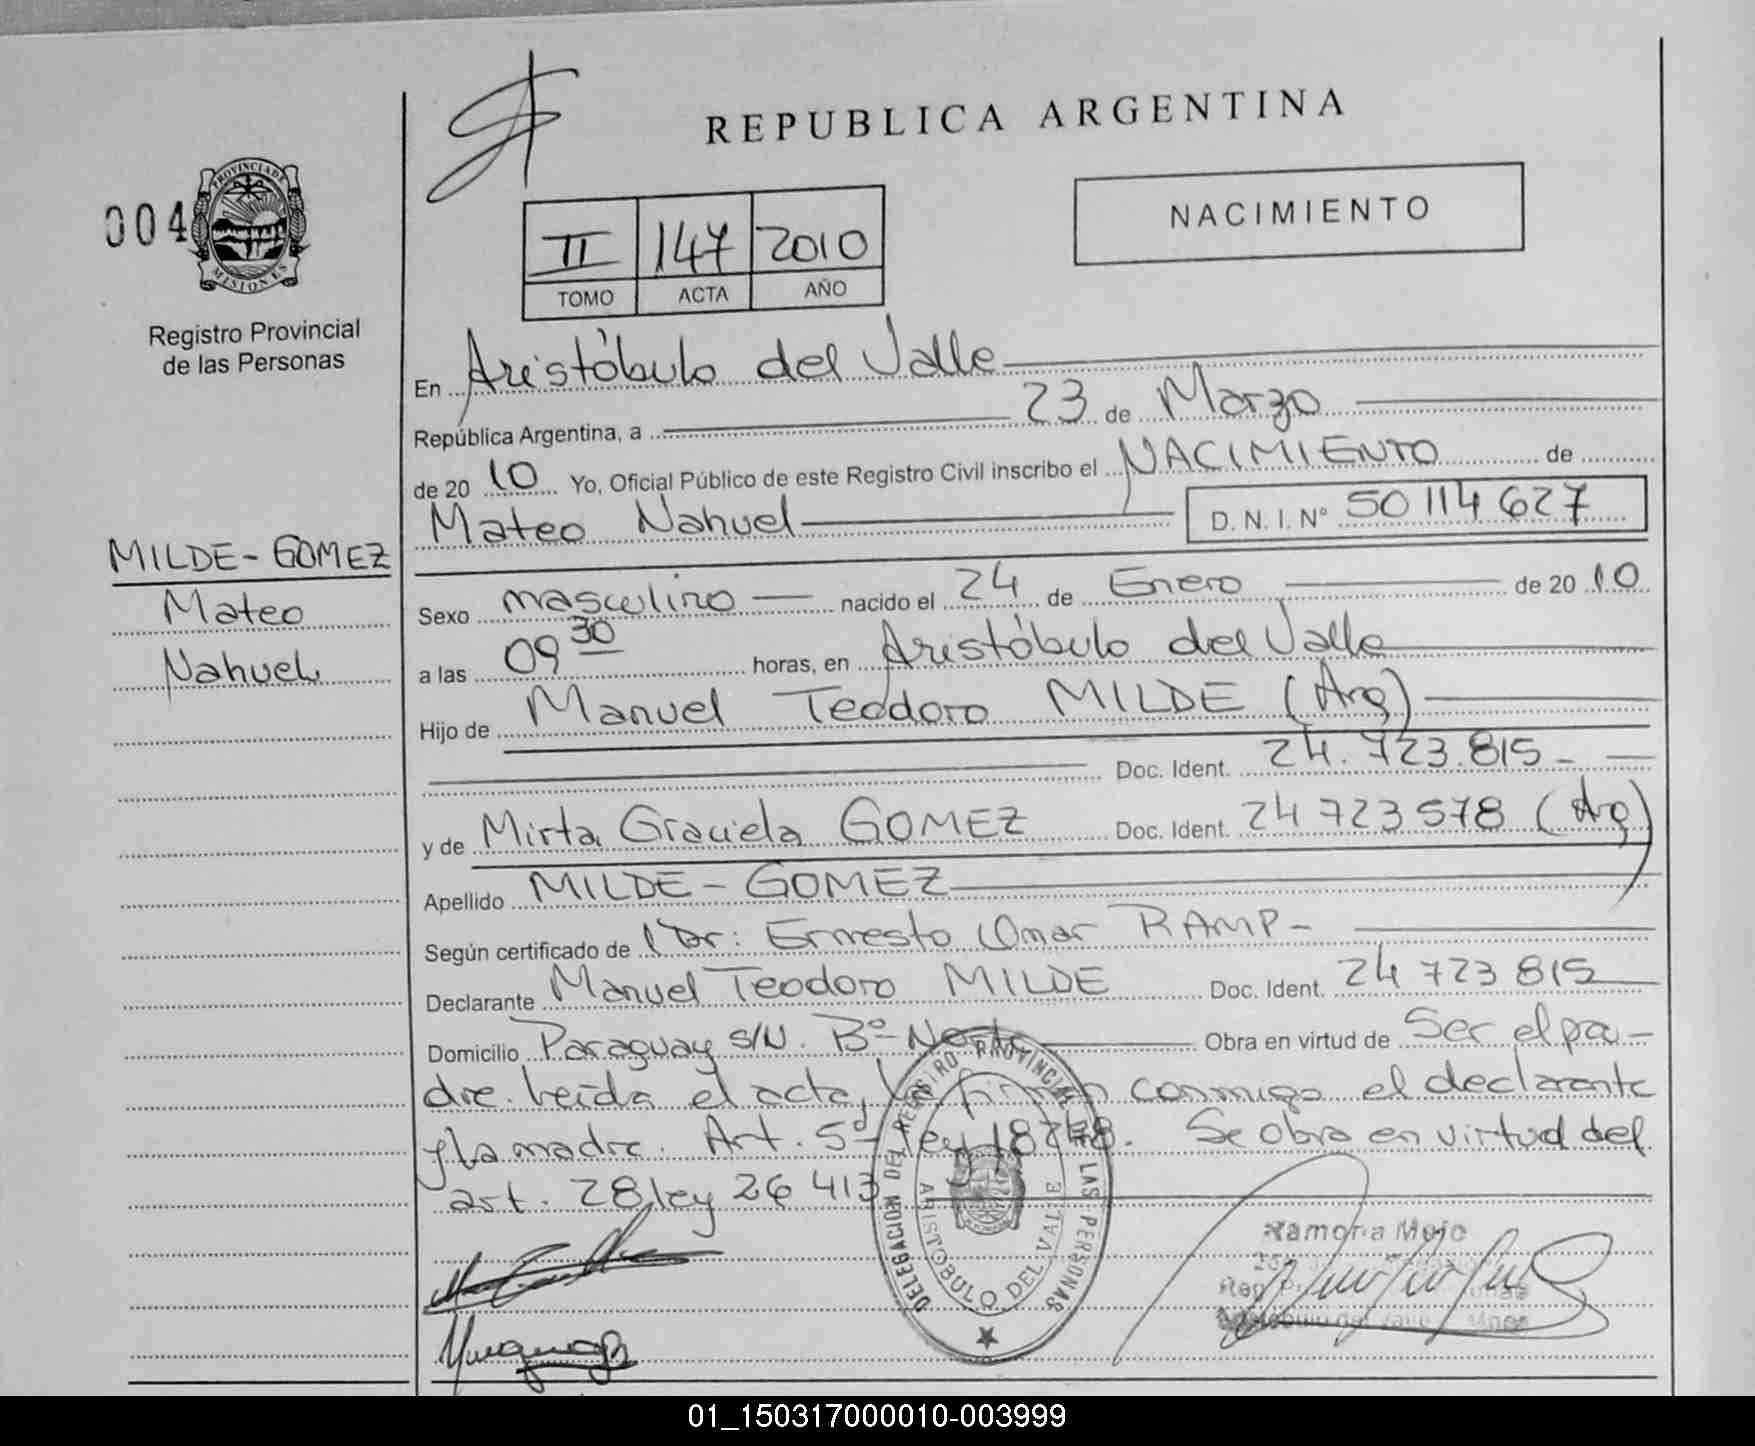 REPUBLICA ARGENTINA
004
PROVINCIA DE
MISIONES
Registro Provincial
de las Personas
II 147 2010
TOMO ACTA AÑO
NACIMIENTO
En Aristóbulo del Valle
República Argentina, a 23 de Marzo
de 20 10 Yo, Oficial Público de este Registro Civil inscribo el NACIMIENTO de
Mateo Nahuel D. N. I. Nº 50 114 627
MILDE - GOMEZ
Mateo
Nahuel
Sexo masculino nacido el 24 de Enero de 20 10
a las 09 30 horas, en Aristóbulo del Valle
Hijo de Manuel Teodoro MILDE (Arg)
Doc. Ident. 24.723.815 -
y de Mirta Graciela GOMEZ Doc. Ident. 24 723 578 (Arg)
Apellido MILDE - GOMEZ
Según certificado de Dr: Ernesto Omar RAMP -
Declarante Manuel Teodoro MILDE Doc. Ident. 24 723 815
Domicilio Paraguay s/N. Bº Norte Obra en virtud de Ser el pa -
dre. Leída el acta, la firman conmigo el declarante
y la madre. Art. 5º ley 18248. Se obra en virtud del
art. 28 ley 26 413
DELEGACION DEL REGISTRO PROVINCIAL DE LAS PERSONAS
ARISTOBULO DEL VALLE
Ramona Mejo
01_150317000010-003999